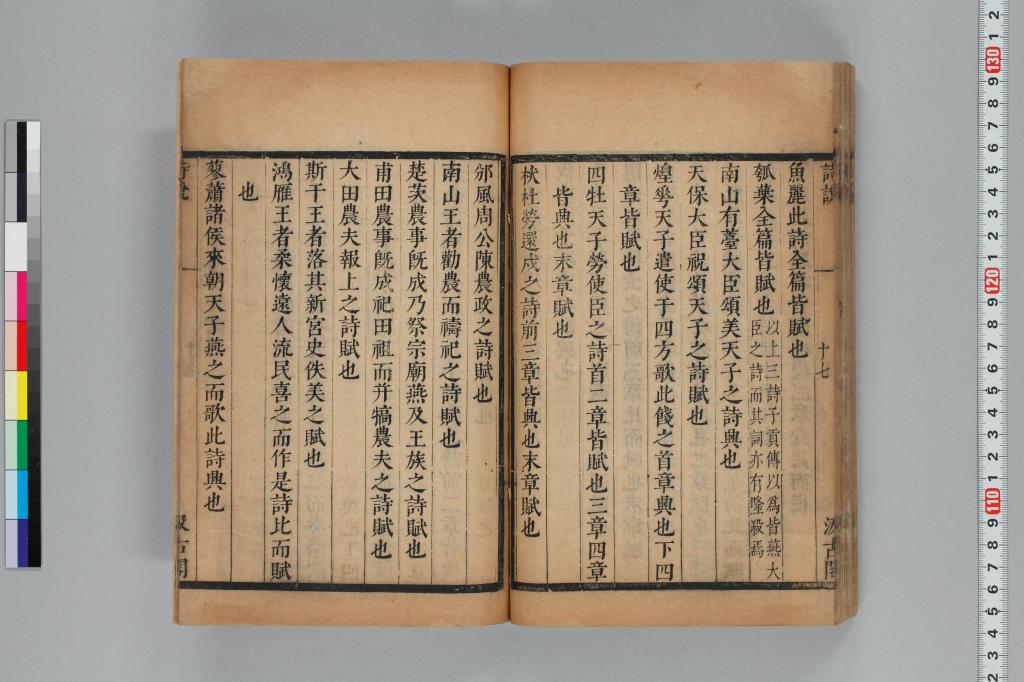 詩說
十七
汲古閣
魚麗此詩全篇皆賦也
瓠葉全篇皆賦也以上三詩子貢傳以為皆燕大
臣之詩而其詞亦有隆殺焉
南山有薹大臣頌美天子之詩興也
天保大臣祝頌天子之詩賦也
煌𠌶天子遣使于四方歌此餞之首章興也下四
章皆賦也
四牡天子勞使臣之詩首二章皆賦也三章四章
皆興也末章賦也
杕杜勞還戍之詩前三章皆興也末章賦也
邠風周公陳農政之詩賦也
南山王者勸農而禱祀之詩賦也
楚茨農事旣成乃祭宗廟燕及王族之詩賦也
甫田農事旣成祀田祖而幷犒農夫之詩賦也
大田農夫報上之詩賦也
斯干王者落其新宮史佚美之賦也
鴻雁王者柔懷遠人流民喜之而作是詩比而賦
也
蓼蕭諸侯來朝天子燕之而歌此詩興也
詩說
汲古閣